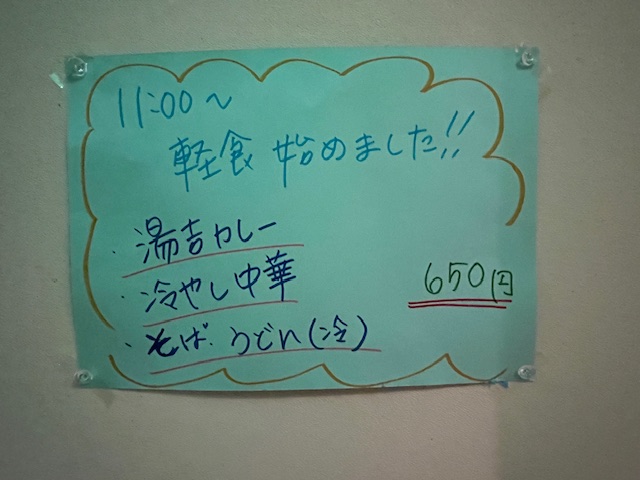 11:00～
軽食 始めました!!
・湯吉カレー
・冷やし中華
650円
・そば.うどん(冷)